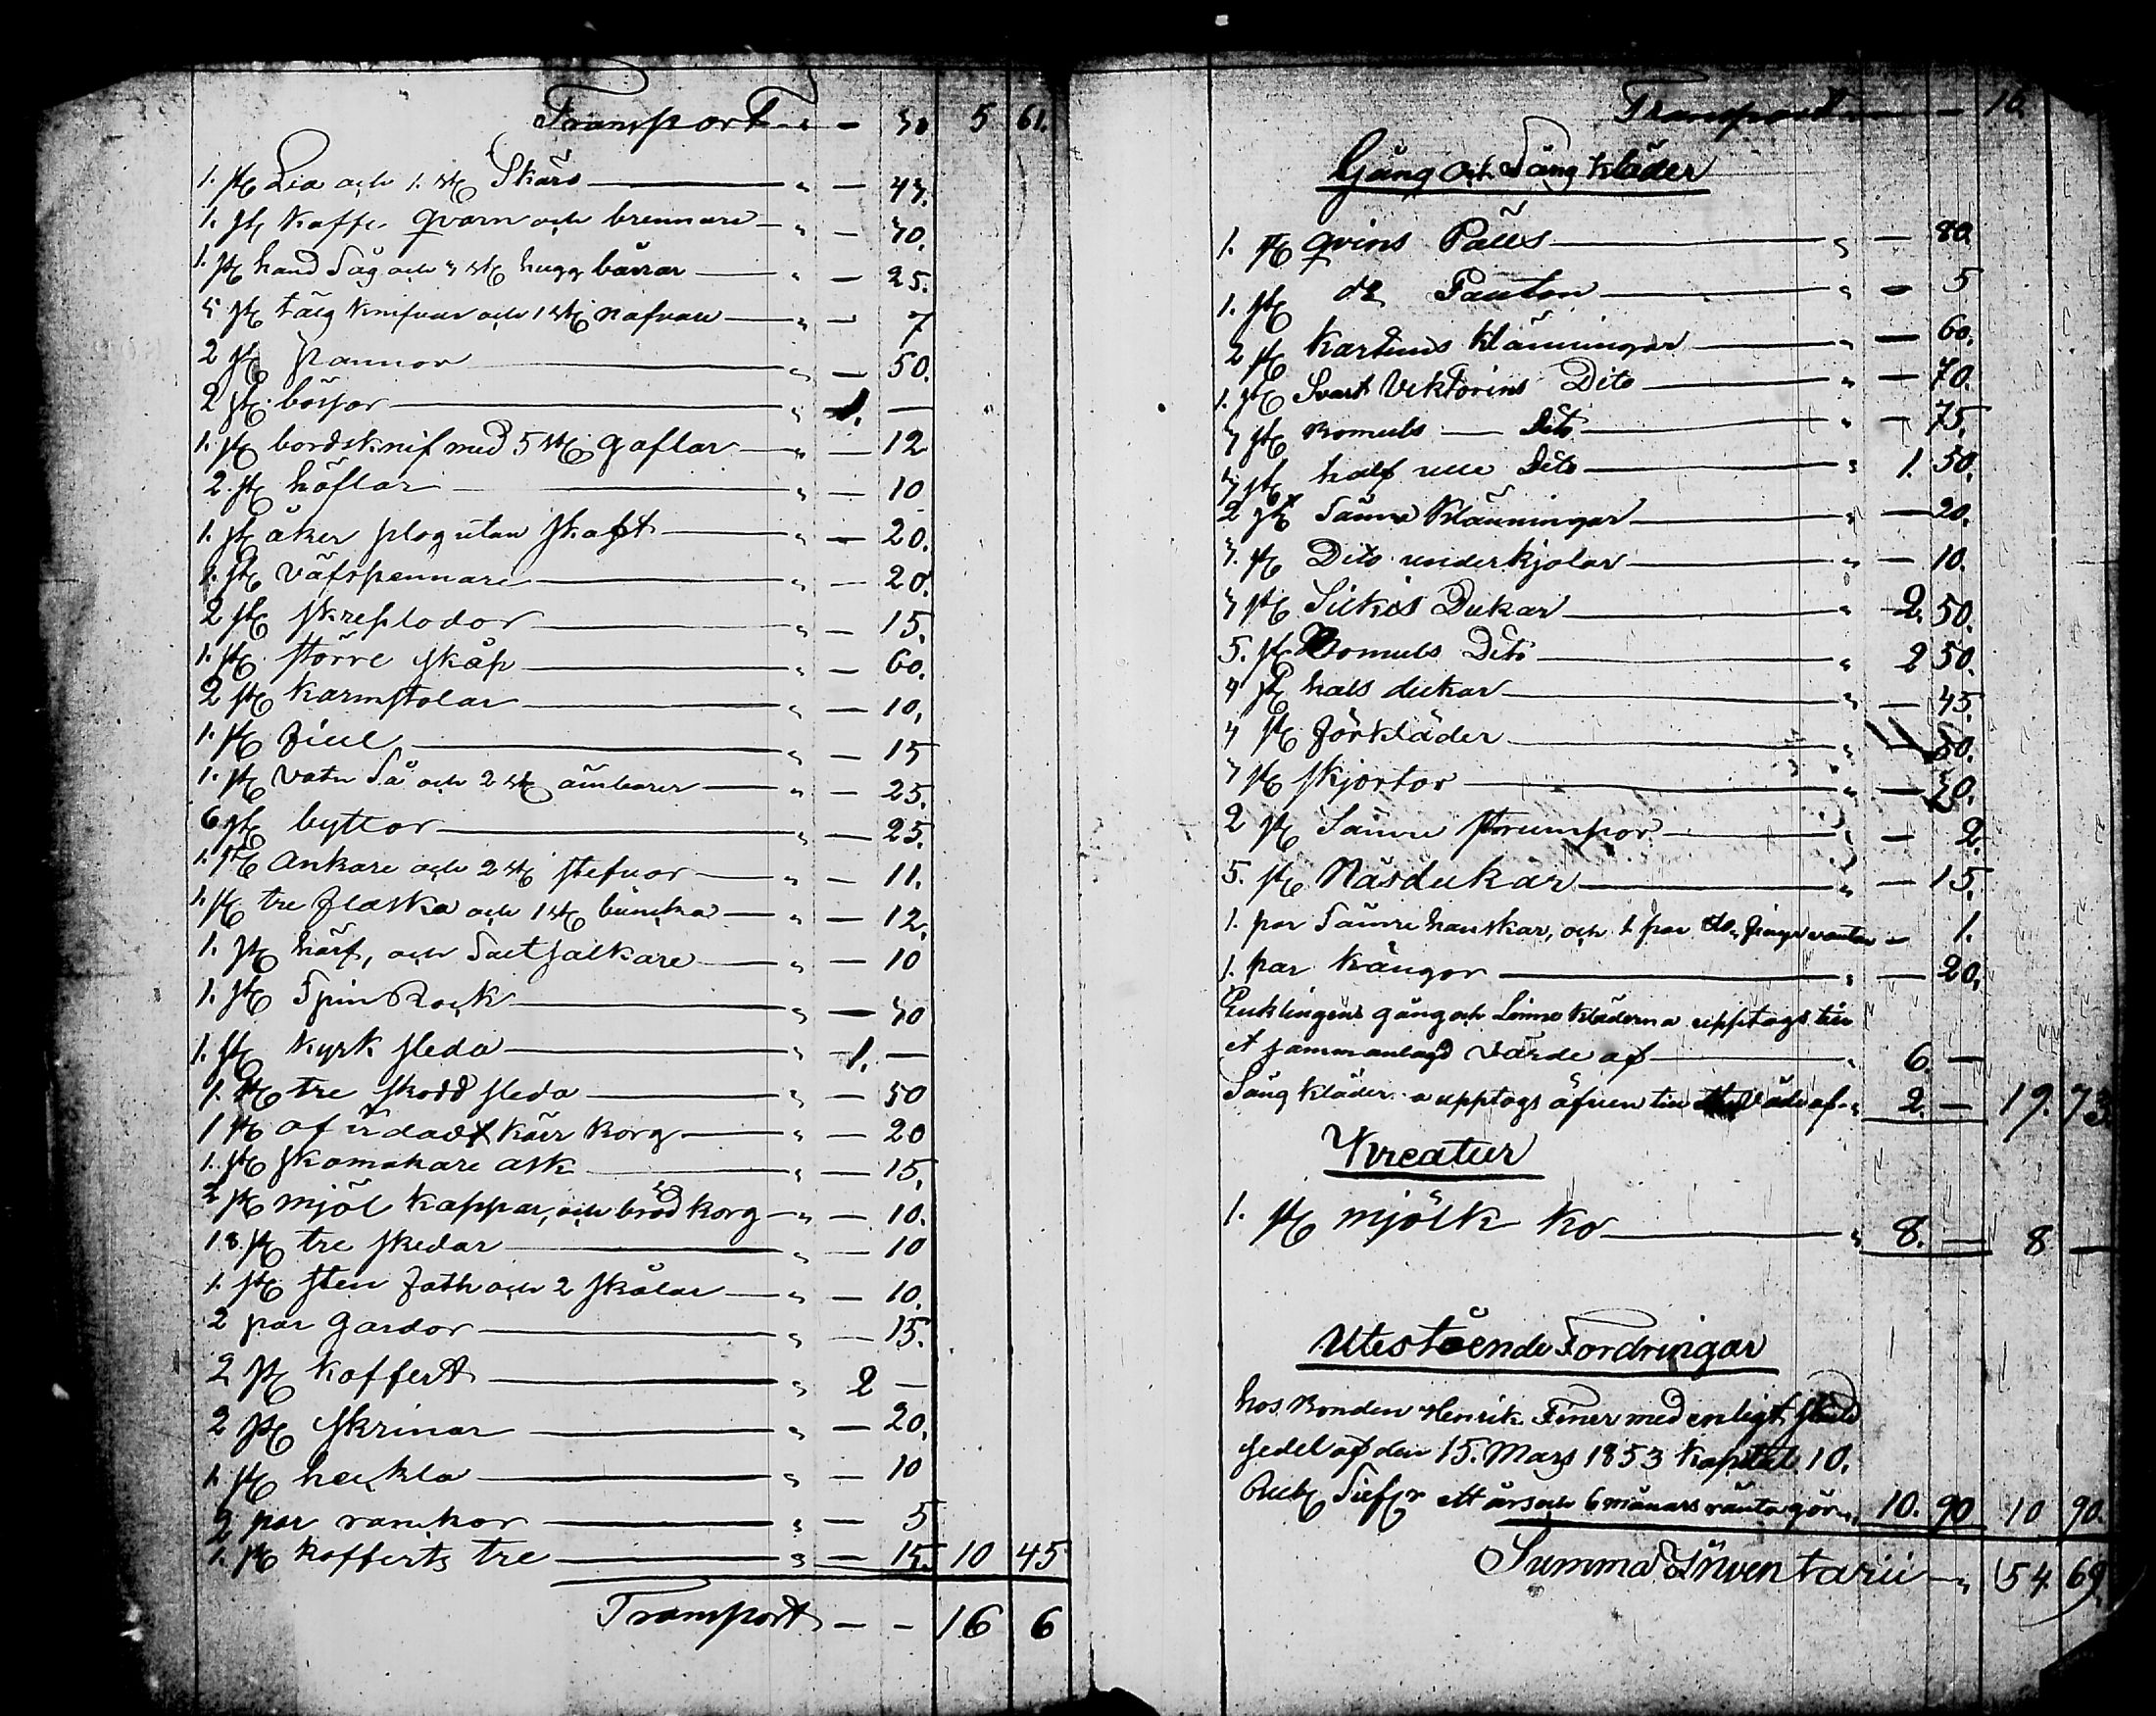 Transport " — 30 5 61.
1. st Lia och 1. st Skära " — 43.
1. st Kaffe qvarn och brennare " — 30.
1. st hand Såg och 3 st hugg bårrar " — 25.
5 st tälg knifvar och 1 st nafvare " — 7
2 st pannor " — 50.
2 st. bössor " 1. —
1. st bordsknif med 5 st gaflar " — 12
2. st höflar " — 10
1. st åker plog utan skaft " — 20.
1. st väfspennare " — 20.
2 st skreplodor " — 15.
1. st större skåp " — 60.
2 st karmstolar " — 10,
1. st fiol " — 15
1. st vatn Så och 2 st ämbarer " — 25.
6 st byttor " — 25.
1. st Ankare och 2 st stefvor " — 11.
1. st tre flaska och 1 st buncka " — 12.
1. st härf, och Salt salkare " — 10
1. st Spin Rock " — 30
1. st kyrk sleda " 1. —
1. st tre skodd sleda " — 50
1 st af kärr korg " — 20
1. st skomakare ask " — 15.
2 st mjöl kappar, och bröd korg " — 10.
18. st tre skedar " — 10
1. st sten fath och 2 skålar " — 10.
2 par gardor " — 15.
2 st koffert " 2 —
2 st skrinar " — 20.
1. st heckla " — 10
2 par ramkor " — 5
1. st kofferts tre " — 15. 10 45
Transport — — 16 6
Transport — 16
Gång och Säng kläder
1. st qvins Päls " — 80
1. st do Palton " — 5
2 st kartuns klänningar " — 60.
1. st Svart Viktorins Dito " — 70.
3 st Bomuls — Dito " — 75.
3 st half ulle Dito " 1. 50.
2 st Sämre klänningar " — 20.
3. st Dito underkjolar " — 10.
3 st Silkes Dukar " 2. 50.
5. st Bomuls Dito " 2 50.
4 st hals dukar " — 45.
4 st förkläder " — 50.
3 st skjortor " — 30.
2 st Sämre strumpor " — 2.
5. st Näsdukar " — 15.
1. par Sämre hanskar, och 1 par finger vantar " 1.
1. par kängor " — 20.
Enklingens gång och Linne kläderna upptogs till
et sammanlagd värde af " 6. —
Säng kläder a upptogs äfven till värde af " 2. — 19. 73
Kreatur
1. st mjölk ko " 8. — 8 —
Utestående Fordringar
hos Bonden Henrik Finer med enligt skuld
sedel af den 15. Mars 1853 kapital 10.
Rub Silfer ett års och 6 månars ränta gör " 10. 90 10 90.
Summa Inventarii " 54 69.